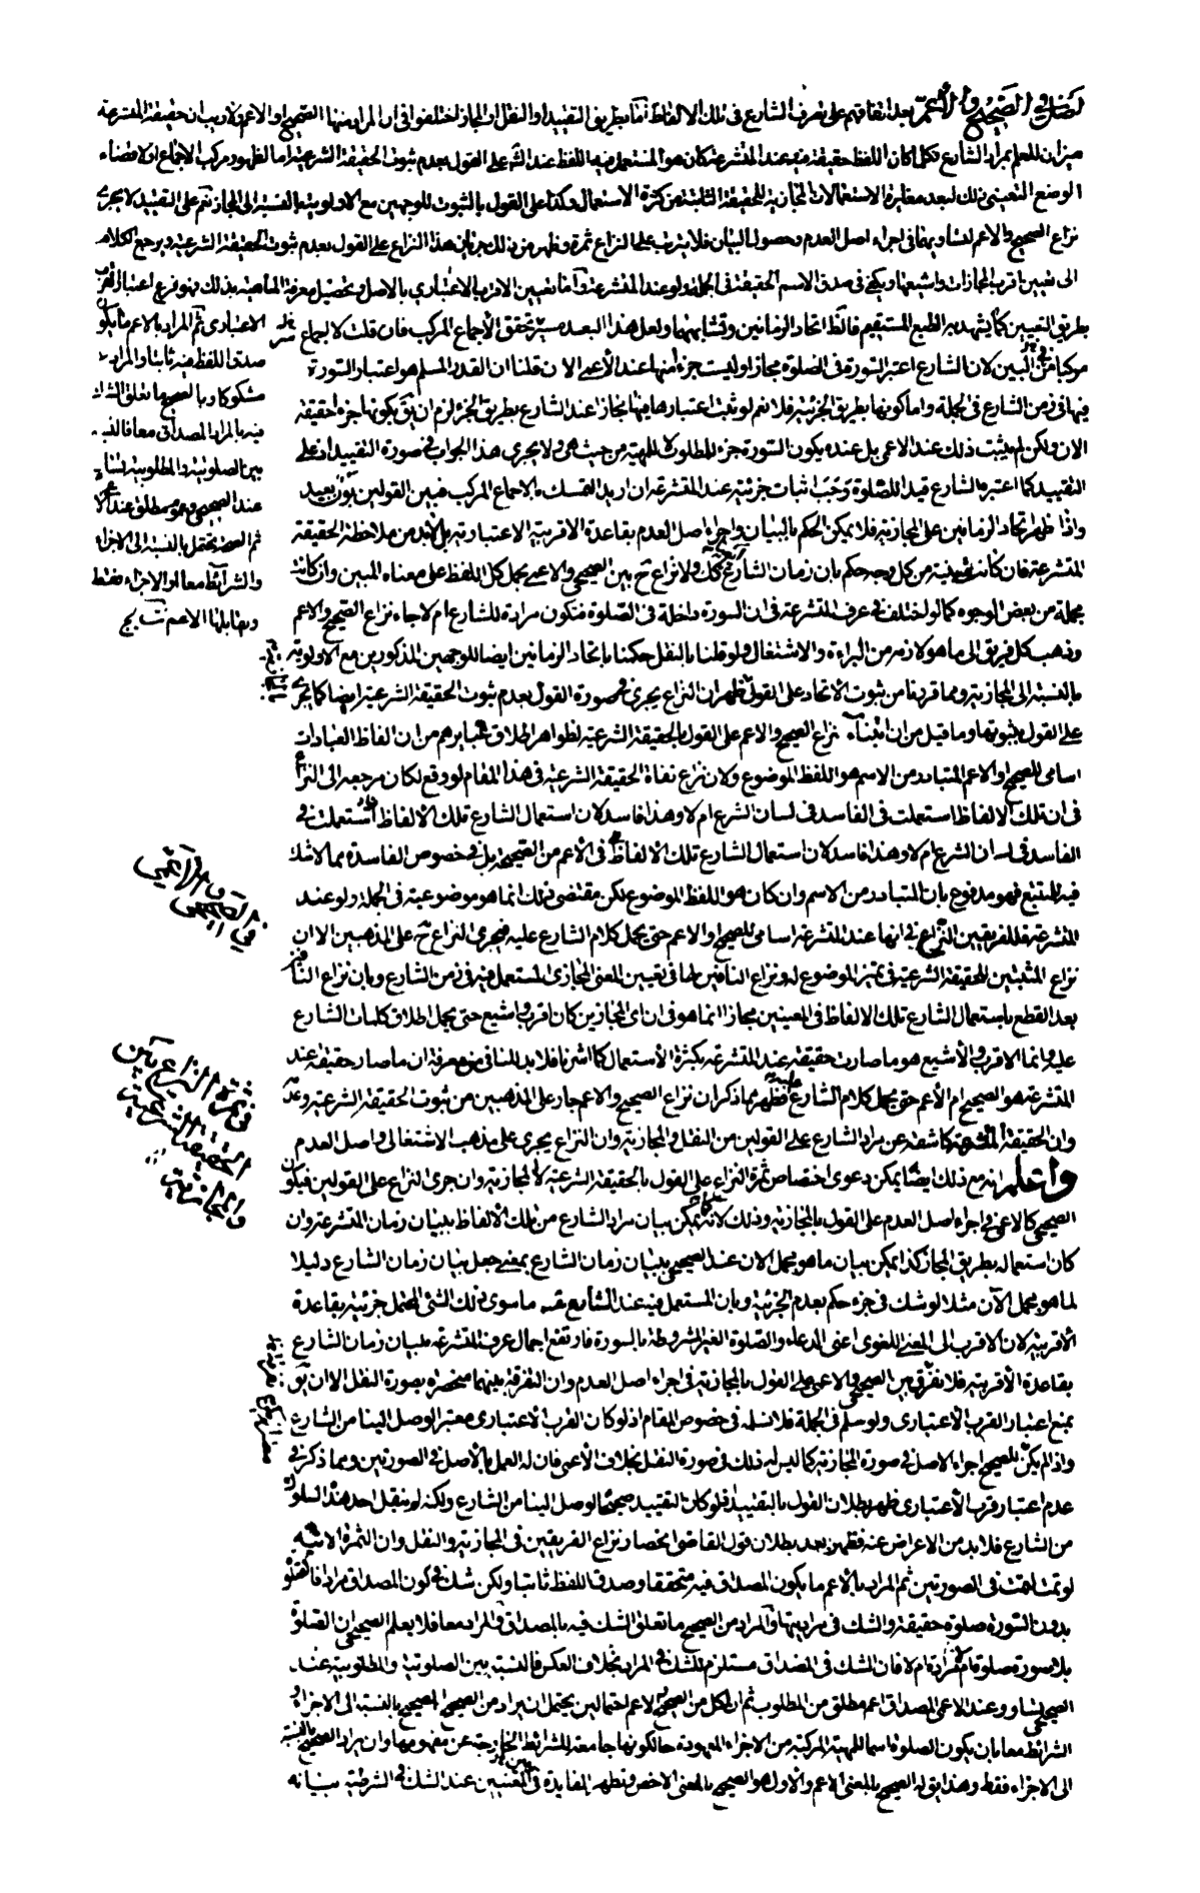 فصل في الصحيح والأعمّ بعد اتفاقهم على تصرف الشارع في تلك الالفاظ اما بطريق التقييد او النقل او المجاز اختلفوا في ان المراد منها الصحيح او الاعم ولا ريب ان حقيقة المتشرعة
ميزان للعلم بمراد الشارع فكلما كان اللفظ حقيقة فيه عند المتشرعة كان هو المستعمل فيه اللفظ عند الشارع على القول بعدم ثبوت الحقيقة الشرعية اما لظهور مركب الاجماع او لاقتضاء
الوضع التعيني ذلك لبعد مغايرة الاستعمالات المجازية للحقيقة الثابتة من كثرة الاستعمال وكذا على القول بالثبوت للوجهين مع الاولوية بالنسبة الى المجاز نعم على التقييد لا يجري
نزاع الصحيح والاعم لتساويهما في اجراء اصل العدم وحصول البيان فلا يترتب على النزاع ثمرة وظهر من ذلك جريان هذا النزاع على القول بعدم ثبوت الحقيقة الشرعية ويرجع الكلام
الى تعيين اقرب المجازات واشيعها ويكفي في صدق الاسم الحقيقة في الجملة ولو عند المتشرعة واما تعيين الاقرب الاعتباري بالاصل وتحصيل معرفة الماهية بذلك فهو فرع اعتبار القرب
بطريق التعيين كما يشهد به الطبع المستقيم اتحاد الزمانين وتشابههما ولعل هذا البعد تحقق الأجماع المركب فان قلت لا اجماع
مركبا في البين لان الشارع اعتبر السورة في الصلوة مجازا وليست جزء منها عند الأعمي الان قلنا ان القدر المسلم هو اعتبار السورة
فيها في زمن الشارع في الجملة واما كونها بطريق الجزئية فلا نعم لو ثبت اعتبارها فيها مجازا عند الشارع بطريق الجزء لزم ان يكونها جزء حقيقة
الان ولكن لم يثبت ذلك عند الاعمي بل عنده يكون السورة جزء للمطلوب لا للمهية من حيث هي ولا يجري هذا الجواب في صورة التقييد اذ على
التقييد كلما اعتبره الشارع قيدا للصلوة وجب اثبات جزئيته عند المتشرعة ان اريد التمسك بالاجماع المركب فبين القولين بون بعيد
واذا ظهر اتحاد الزمانين على المجازية فلا يمكن الحكم بالبيان واجراء اصل العدم بقاعدة الاقربية الاعتبارية بل لابد من ملاحظة الحقيقة
المتشرعة فان كانت مبينة من كل وجه حكم بان زمان الشارع كك ولا نزاع ح بين الصحيحي والاعمي بحمل كل اللفظ على معناه المبين وان كانت
مجملة من بعض الوجوه كما لو اختلف في عرف المتشرعة في ان السورة داخلة في الصلوة فتكون مرادة للشارع ام لا جاء نزاع الصحيح والاعم
وذهب كل فريق الى ما هو لازمه من البراءة والاشتغال ولو قلنا بالنقل حكمنا باتحاد الزمانين ايضا للوجهين المذكورين مع الاولوية
بالنسبة الى المجازية ومما قررنا من ثبوت الاتحاد على القول ظهر ان النزاع يجري في صورة القول بعدم ثبوت الحقيقة الشرعية ايضا كما يجري
على القول بثبوتها وما قيل من ان ابتناء نزاع الصحيح والاعم على القول بالحقيقة الشرعية لظواهر اطلاق عبايرهم من ان الفاظ العبادات
اسامي للصحيح او الاعم المتبادر من الاسم هو اللفظ الموضوع ولان نزاع نفاة الحقيقة الشرعية في هذا المقام لو وقع لكان مرجعه الى النزاع
في ان تلك الالفاظ استعملت في الفاسد في لسان الشرع ام لا وهذا فاسد لان استعمال الشارع تلك الالفاظ استعملت في
الفاسد في لسان الشرع ام لا وهذا فاسد لان استعمال الشارع تلك الالفاظ في الأعم من الصحيحة بل في خصوص الفاسدة مما لا شك
فيه للمتتبع فهو مدفوع بان المتبادر من الاسم وان كان هو اللفظ الموضوع لكن مقتضى ذلك انما هو موضوعيته في الجملة ولو عند
المتشرعة فللفريقين النزاع في انها عند المتشرعة اسامي للصحيح او الاعم حتى يحمل كلام الشارع عليه فيجري النزاع ح على المذهبين الا ان
نزاع المثبتين للحقيقة الشرعية في تميز الموضوع له ونزاع النافين لها في تعيين المعنى المجازي المستعمل فيه في زمن الشارع وبان نزاع
بعد القطع باستعمال الشارع تلك الالفاظ في المعنيين مجازا انما هو في ان اي المجازين كان اقرب واشيع حتى يحمل اطلاق كلمات الشارع
عليه وانما الاقرب والأشيع هو ما صارت حقيقة عند المتشرعة بكثرة الأستعمال كما اشرنا فلا بد للنافي من معرفة ان ما صار حقيقة عند
المتشرعة هو الصحيح ام الأعم حتى يحمل كلام الشارع عليه فظهر مما ذكر ان نزاع الصحيح والاعم جار على المذهبين من ثبوت الحقيقة الشرعية وعدمه
وان الحقيقة المتشرعة كاشفة عن مراد الشارع على القولين من النقل والمجازية وان النزاع يجري على مذهب الاشتغالي واصل العدم
واعلم انه مع ذلك ايضا يمكن دعوى اختصاص ثمرة النزاع على القول بالحقيقة الشرعية لا المجازية وان جرى النزاع على القولين فيكون
الصحيحي كالاعمي في اجراء اصل العدم على القول بالمجازية وذلك لانه كما يمكن بيان مراد الشارع من تلك الالفاظ ببيان زمان المتشرعة وان
كان استعماله بطريق المجاز كذا يمكن بيان ما هو مجمل الان عند الصحيحي ببيان زمان الشارع بمعنى جعل بيان زمان الشارع دليلا
لما هو مجمل الآن مثلا لو شك في جزء حكم بعدم الجزئية وبان المستعمل فيه عند الشارع ما سوى ذلك الشئ المحتمل جزئيته بقاعدة
الأقربية لان الاقرب الى المعنى اللغوي اعني الدعاء والصلوة الغير المشروطة بالسورة فارتفع اجمال عرف المتشرعة ببيان زمان الشارع
بقاعدة الأقربية فلا تفرقة بين الصحيحي والاعمي على القول بالمجازية في اجراء اصل العدم وان التفرقة بينهما منحصرة بصورة النقل الا ان يق
بمنع اعتبار القرب الأعتباري ولو سلم في الجملة فلا نسلمه في خصوص المقام اذ لو كان القرب الأعتباري معتبرا لوصل الينا من الشارع
واذا لم يكن للصحيحي اجراء الاصل في صورة المجازية كما ليس له ذلك في صورة النقل بخلاف الأعمي فان له العمل بالأصل في الصورتين ومما ذكر في
عدم اعتبار قرب الأعتباري ظهر بطلان القول بالتقييد فلو كان التقييد صحيحا لوصل الينا من الشارع ولكنه لم ينقل احد هذا السلوك
من الشارع فلا بد من الاعراض عنه فظهر بعد بطلان قول القاضي انحصار نزاع الفريقين في المجازية والنقل وان الثمرة الاتية
لو تمت لتمت في الصورتين ثم المراد بالأعم ما يكون المصداق فيه متحققا وصدق اللفظ ثابتا ولكن شك في كون المصداق مرادا فالصلوة
بدون السورة صلوة حقيقة والشك في مراديتها والمراد من الصحيح ما تعلق الشك فيه بالمصداق والمراد معا فلا يعلم الصحيحي ان الصلوة
بلا سورة صلوة ام لا ومرادة ام لا فان الشك في المصداق مستلزم للشك في المراد بخلاف العكس فالنسبة بين الصلوتية والمطلوبية عند
الصحيحي تساو وعند الاعمي المصداق اعم مطلق من المطلوب ثم ان لكل من الصحيح والاعم احتمالين يحتمل ان يراد من الصحيح الصحيح بالنسبة الى الاجزاء و
الشرائط معا بان يكون الصلوة اسما للمهية المركبة من الاجزاء المعهودة حالكونها جامعة للشرائط الخارجة عن مفهومها وان يراد الصحيح بالنسبة
الى الاجزاء فقط وهذا يق له الصحيح بالمعنى الاعم والأول هو الصحيح بالمعنى الاخص وتظهر الفايدة في المعنيين عند الشك في الشرطية بيانه
الاعتباري ثم المراد بالاعم ما يكون
صدق اللفظ فيه ثابتا والمراد
مشكوكا وبالصحيح ما تعلق الشك
فيه بالمراد والمصداق معا فالنسبة
بين الصلوتية والمطلوبية تساو
عند الصحيحي وعموم مطلق عند الاعمي
ثم الصحة يحتمل بالنسبة الى الاجزاء
والشرائط معا او الاجزاء فقط
ويقابلها الاعم
في الصحيحي والاعمي
في ثمرة النزاع بين
الحقيقة الشرعية
والمجازية